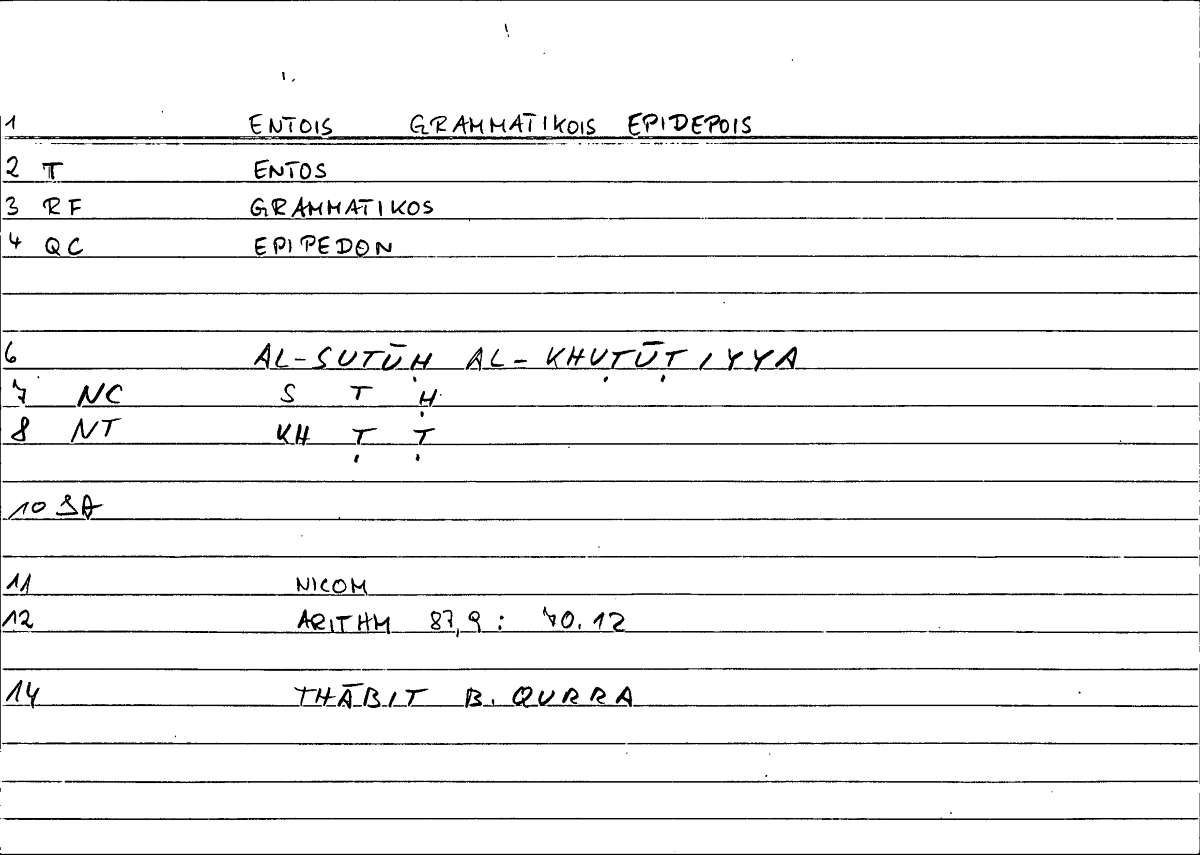 1 ENTOIS GRAMMATIKOIS EPIDEPOIS
2 T ENTOS
3 RF GRAMMATIKOS
4 QC EPIPEDON
6 AL-SUTŪḤ AL-KHUṬŪṬIYYA
7 NC S T Ḥ
8 NT KH Ṭ Ṭ
10 SA
11 NICOM
12 ARITHM 87,9 : 70.12
14 THĀBIT B. QURRA